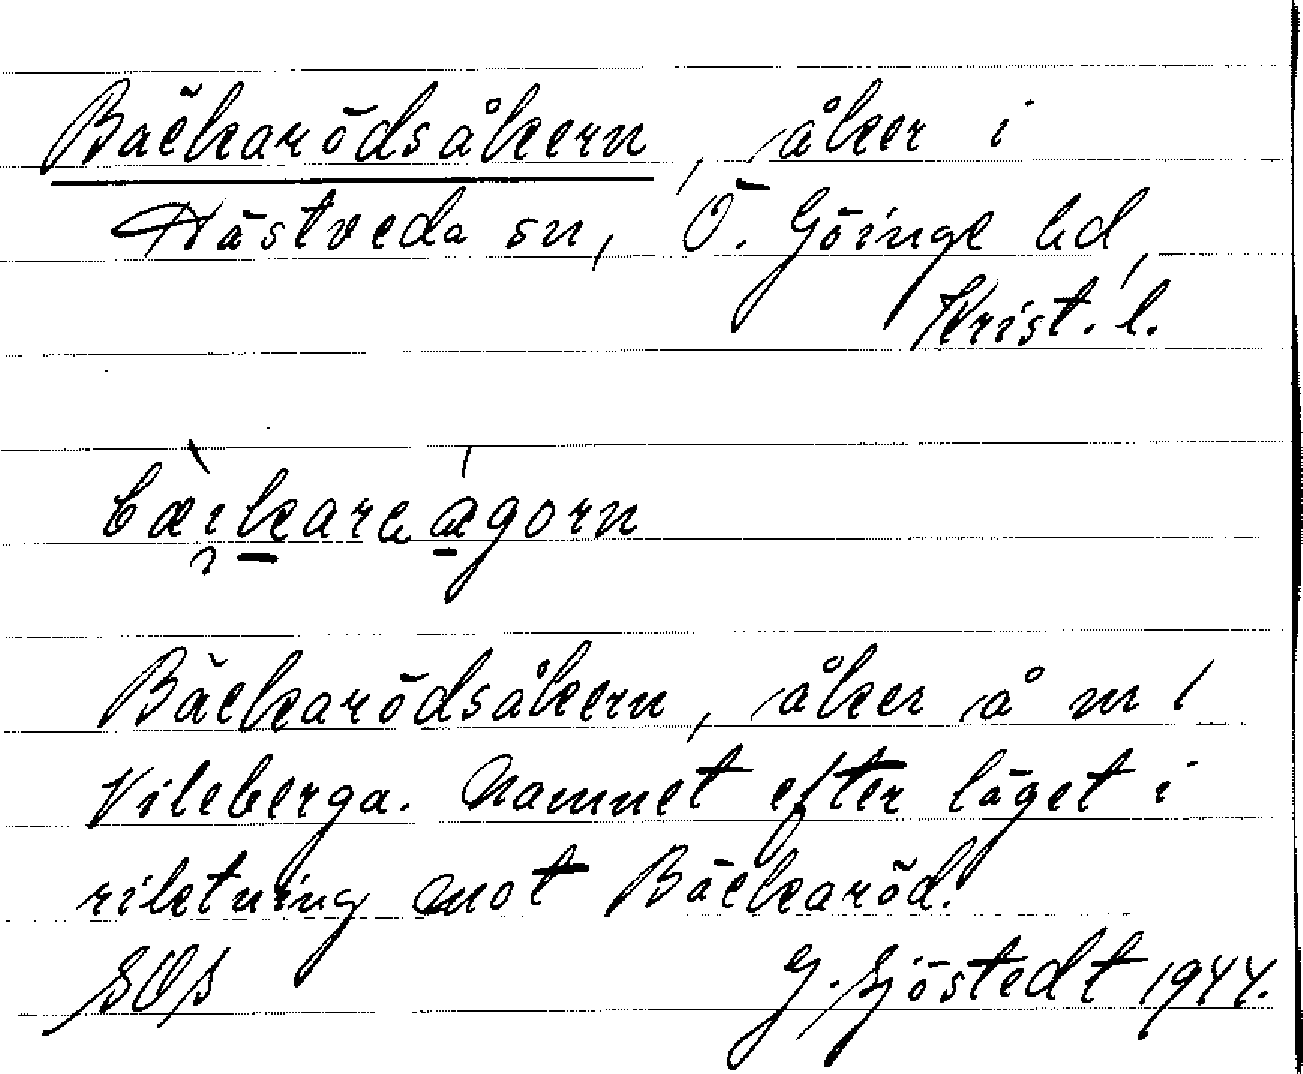 Bäckarödsåkern, åker i
Hästveda sn, Ö. Göinge hd,
Krist. l.
Bäckarödsåkern, åker å nr 1
Vileberga. Namnet efter läget i
riktning mot Bäckaröd.
SOS G. Sjöstedt 1944.